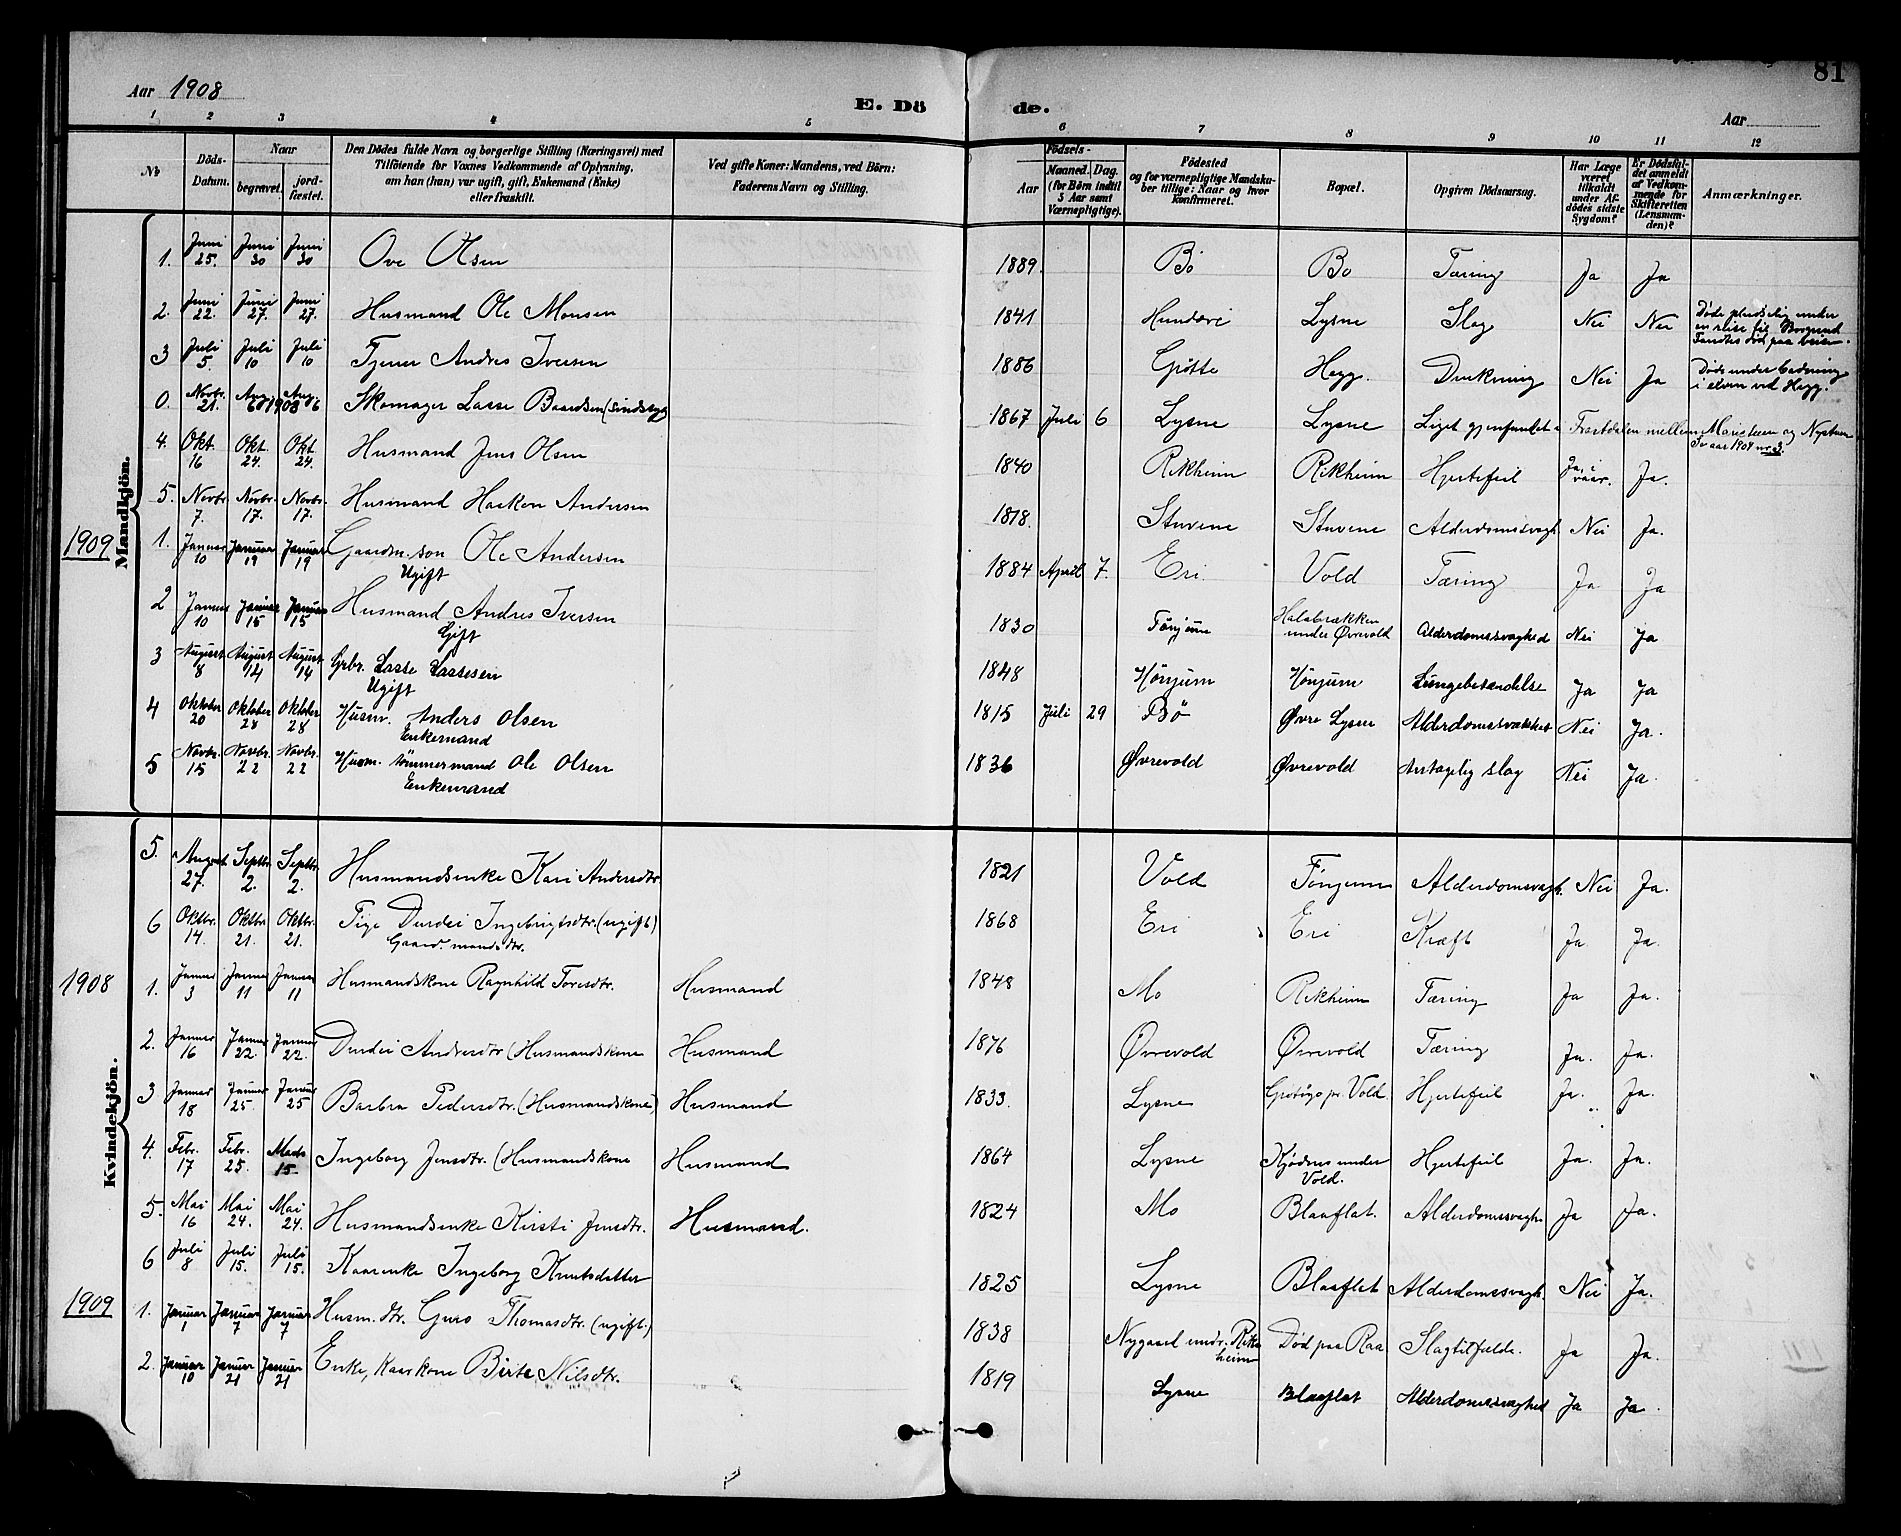 81
Aar 1908
E. Döde.
Aar
1 2 3 4 5 6 7 8 9 10 11 12
No
Döds-Datum.
Naar
begravet.
jordfæstet.
Den Dödes fulde Navn og borgerlige Stilling (Næringsvei) med
Tilföiende for Voxnes Vedkommende af Oplysning,
om han (hun) var ugift, gift, Enkemand (Enke)
eller fraskilt.
Ved gifte Koner: Mandens, ved Börn:
Faderens Navn og Stilling.
Födsels-
Aar
Maaned. Dag.
(for Börn indtil
5 Aar samt
Værnepligtige).
Födested
og for værnepligtige Mandskaber tillige: Naar og hvor
konfirmeret.
Bopæl.
Opgiven Dödsaarsag.
Har Læge
været
tilkaldt
under Afdödes sidste
Sygdom?
Er Dödsfaldet anmeldt
af Vedkommende for
Skifteretten
(Lensmanden)?
Anmærkninger.
Mandkjön.
1. Juni 25. Juni 30 Juni 30 Ove Olsen 1889. Bö Bo Tæring Ja Ja
2. Juni 22. Juni 27. Juni 27. Husmand Ole Monsen 1841 Lysne Slag Nei Nei Døde pludselig under
en reise til Borgund
Fandtes død paa veien.
3 Juli 5. Juli 10 Juli 10 Tjener Andres Iversen 1886 Grøtte Hegg. Drukning Nei Ja Døde under badning
i elven ved Hegg.
0. Novbr. 21. Aug. 6 1908 Aug. 6 Skomager Lasse Baardsen (sindssyg 1867 Juli 6 Lysne Lysne Liget gjenfundet i mellem Maristuen og Nystuen
Se aar 1907 nr 3.
4. Okt. 16 Okt. 24. Okt. 24. Husmand Jens Olsen 1840 Rikheim Rikheim Hjertefeil Ja, i vaar. Ja.
5. Novbr. 7. Novbr. 17. Novbr. 17. Husmand Haakon Andersen 1818. Stuvene Stuvene Alderdomssvagh. Nei Ja.
1909
1. Januar 10 Januar 19 Januar 19 Gaardm. søn Ole Andersen
Ugift 1884 April 7. Eri Vold Tæring Ja Ja
2 Januar 10 Januar 15 Januar 15 Husmand Andres Iversen
Gift 1830 Tønjum Halabrækken
under Øvrevold Alderdomssvaghed Nei Ja
3 August 8 August 14 August 14 Grbr. Lasse Lassesen
Ugift 1848 Hønjum Hønjum Lungebetændelse Ja Ja
4 Oktober 20 Oktober 28 Oktober 28 Husm. Anders Olsen
Enkemand 1815 Juli 29 Bö Øvre Lysne Alderdomssvækkel Nei Ja.
5 Novbr. 15 Novbr. 22 Novbr. 22 Husm. tömmermand Ole Olsen
Enkemand 1836 Øvrevold Øvrevold Antagelig slag Nei Ja.
Kvindekjön.
5. August 27. Septbr. 2. Septbr. 2. Husmandsenke Kari Andersdtr. 1821 Vold Tønjum Alderdomsvagh. Nei Ja.
6 Oktbr. 14. Oktbr 21. Oktbr. 21. Pige Durdei Ingebrigtsdtr. (ugift)
Gaardmandsdtr. 1868 Eri Eri Kræft Ja Ja.
1908
1. Januar 3 Januar 11 Januar 11 Husmandskone Ragnhild Toresdtr. Husmand 1848 Mo Rikheim Tæring Ja Ja.
2. Januar 16 Januar 22. Januar 22. Durdei Andersdtr (Husmandskone Husmand 1876 Øvrevold Øvrevold Tæring Ja. Ja.
3 Januar 18 Januar 25. Januar 25 Barbra Pedersdtr. (Husmandskone) Husmand 1833. Lysne pr. Vold. Hjertefeil Ja. Ja.
4. Febr. 17 Febr. 25. Marts 15. Ingeborg Jensdtr. (Husmandskone Husmand 1864 Lysne Kjødnes under
Vold. Hjertefeil Ja. Ja.
5. Mai 16 Mai 24. Mai 24. Husmandsenke Kirsti Jensdtr. Husmand. 1824 Mo Blaaflat. Alderdomssvagh. Ja Ja.
6 Juli 8 Juli 15. Juli 15. Kaarenke Ingeborg Knutsdatter 1825 Lysne Blaaflat Alderdomssvagh. Nei Ja.
1909
1. Januar 1 Januar 7 Januar 7 Husm. dtr. Guro Thomasdtr. (ugift.) 1838 Nygaard undr. Rikheim Død paa Raa Slagtilfælde. Ja Ja.
2. Januar 10 Januar 21 Januar 21 Enke, Kaarkone Birte Nilsdtr. 1819 Lysne Blaaflat Alderdomssvaghed Ja Ja.